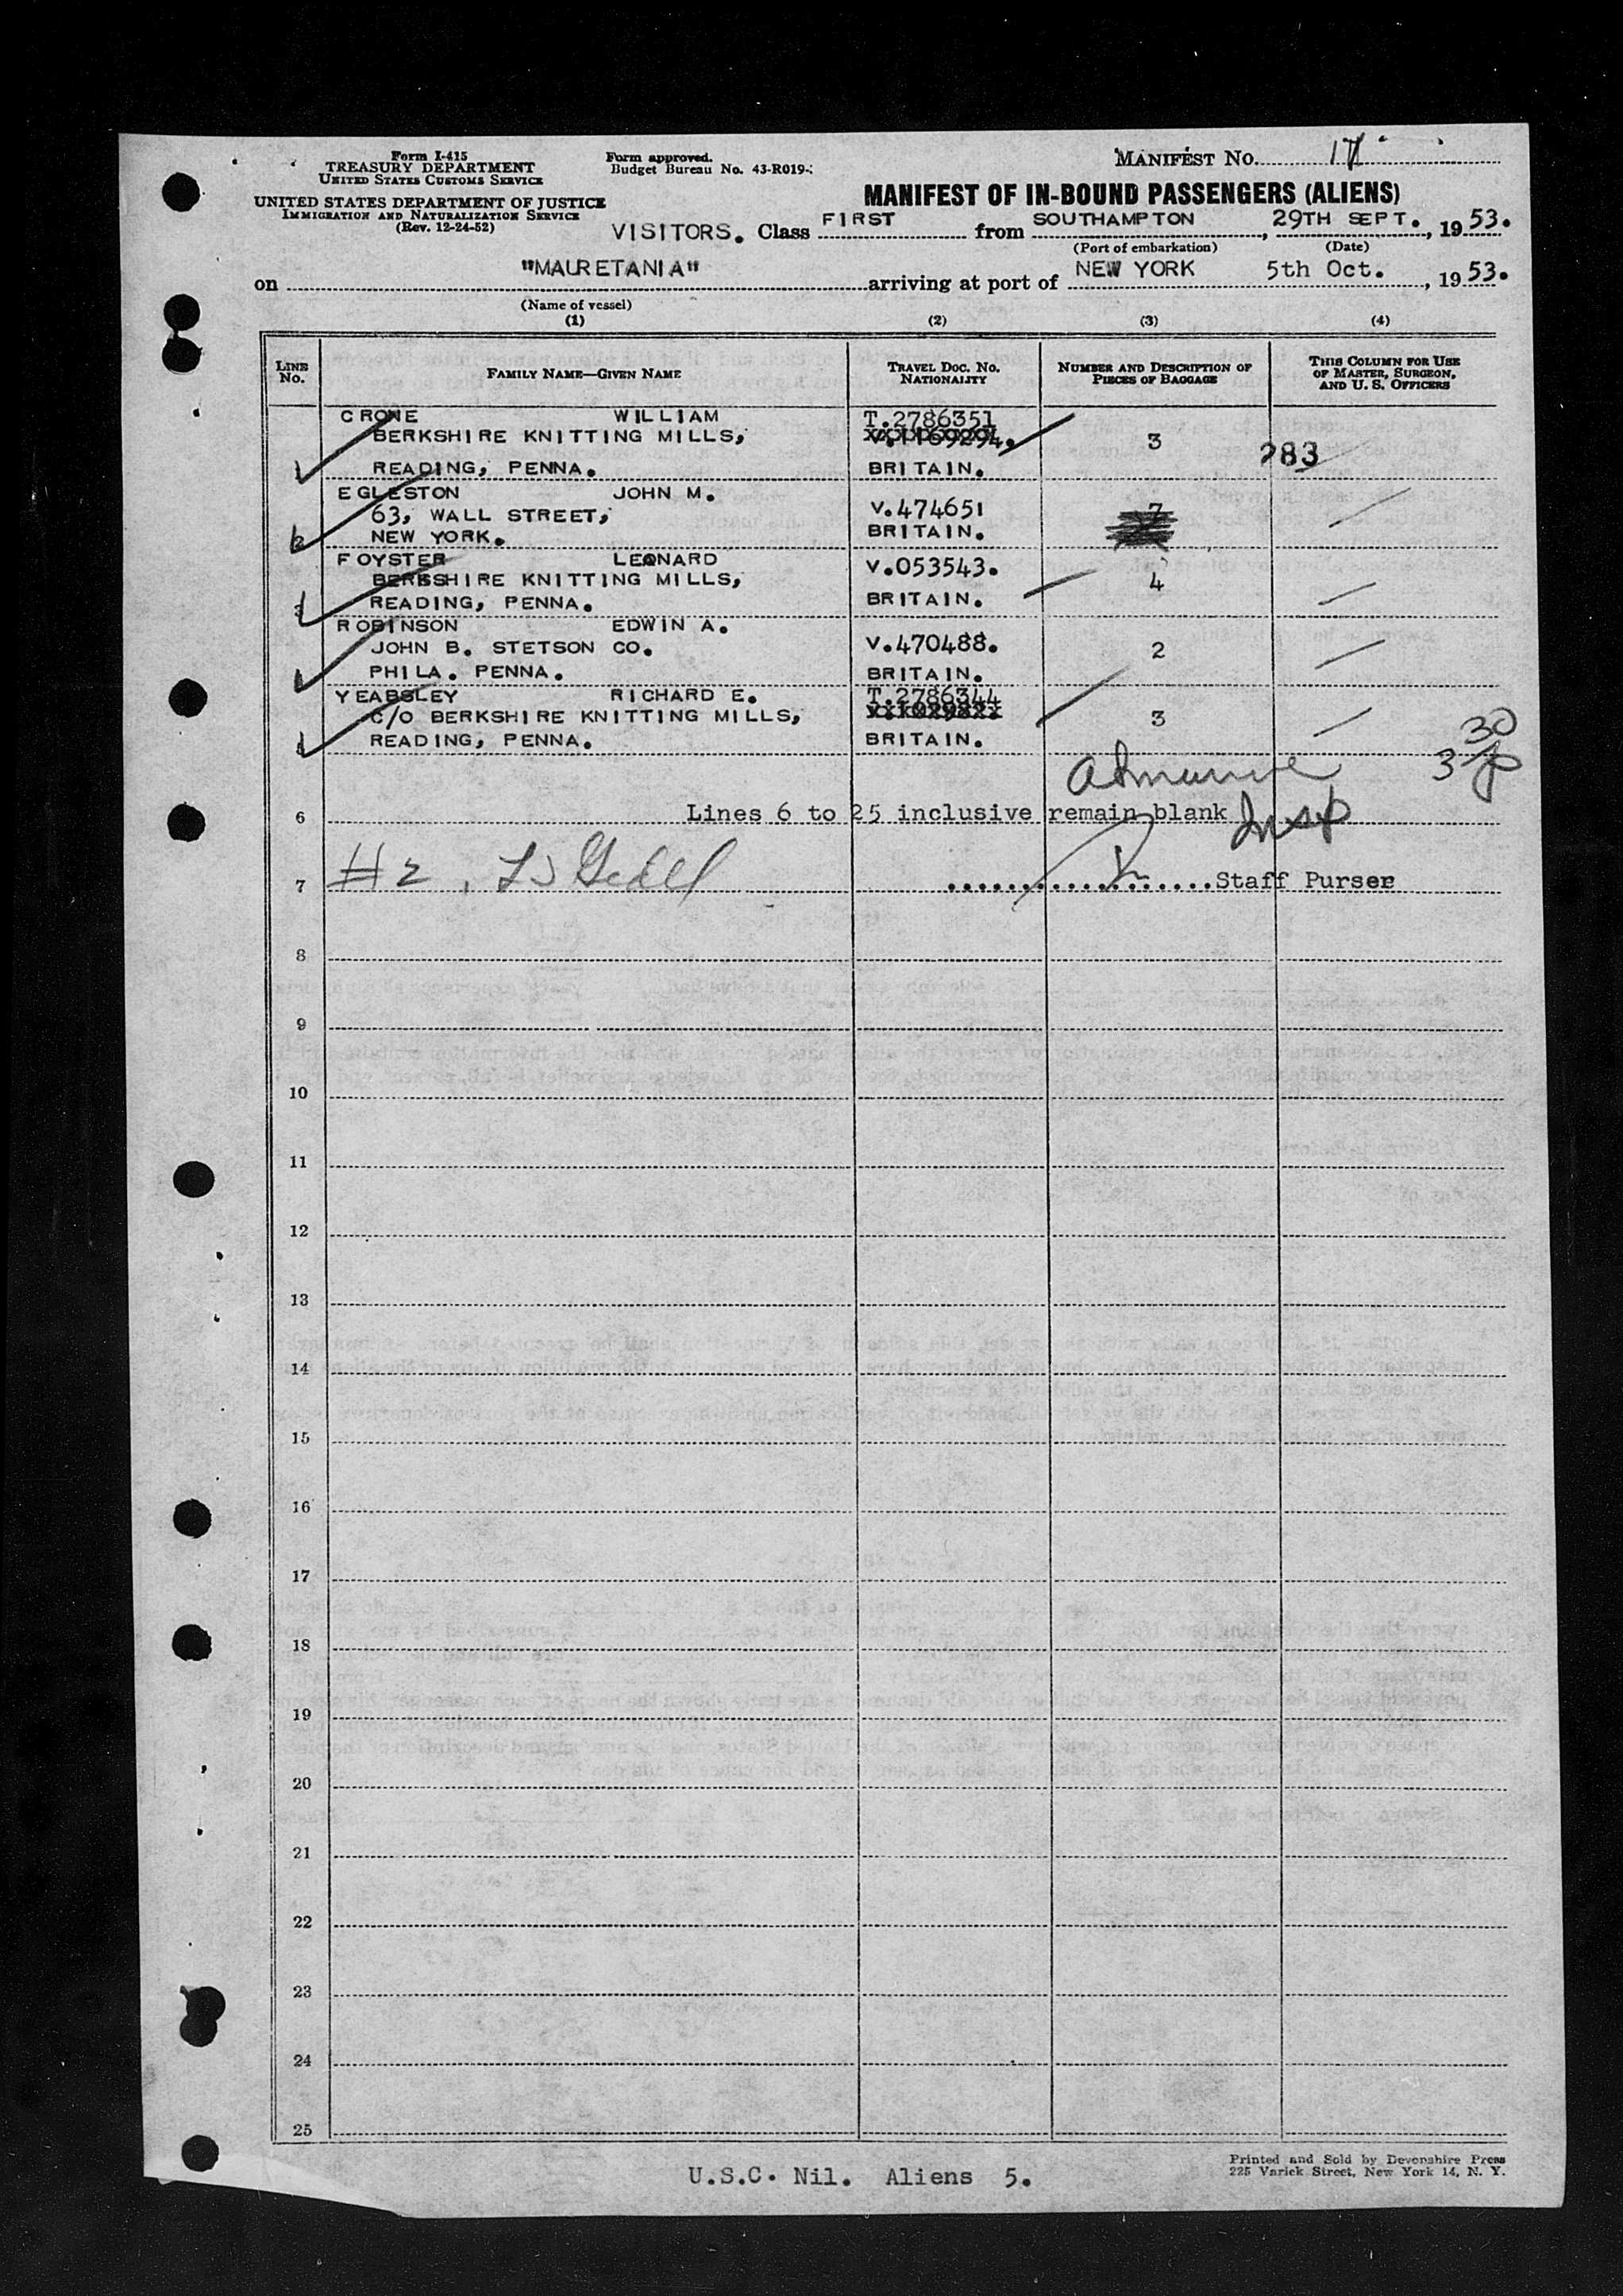 Form I-415
TREASURY DEPARTMENT
UNITED STATES CUSTOMS SERVICE
UNITED STATES DEPARTMENT OF JUSTICE
IMMIGRATION AND NATURALIZATION SERVICE
(Rev. 12-24-52)
Form approved.
Budget Bureau No. 43-R019-
MANIFEST NO. 17
MANIFEST OF IN-BOUND PASSENGERS (ALIENS)
VISITORS. Class FIRST from SOUTHAMPTON, 29TH SEPT., 1953.
(Port of embarkation) (Date)
on "MAURETANIA" arriving at port of NEW YORK 5th Oct., 1953.
(Name of vessel)
(1) (2) (3) (4)
LINE NO. FAMILY NAME—GIVEN NAME TRAVEL DOC. NO. NATIONALITY NUMBER AND DESCRIPTION OF PIECES OF BAGGAGE THIS COLUMN FOR USE OF MASTER, SURGEON, AND U. S. OFFICERS
CRONE WILLIAM T.2786351
BERKSHIRE KNITTING MILLS, 3 283
1 READING, PENNA. BRITAIN.
EGLESTON JOHN M. V.474651 7
63, WALL STREET,
2 NEW YORK. BRITAIN.
FOYSTER LEONARD V.053543.
BERKSHIRE KNITTING MILLS, 4
3 READING, PENNA. BRITAIN.
ROBINSON EDWIN A. V.470488.
JOHN B. STETSON CO. 2
PHILA. PENNA. BRITAIN.
YEABSLEY RICHARD E. T.2786344
C/O BERKSHIRE KNITTING MILLS, 3
READING, PENNA. BRITAIN.
30
3
6 Lines 6 to 25 inclusive remain blank Insp
7 #2, Staff Purser
8
9
10
11
12
13
14
15
16
17
18
19
20
21
22
23
24
25
U.S.C. Nil. Aliens 5.
Printed and Sold by Devonshire Press
225 Varick Street, New York 14, N. Y.